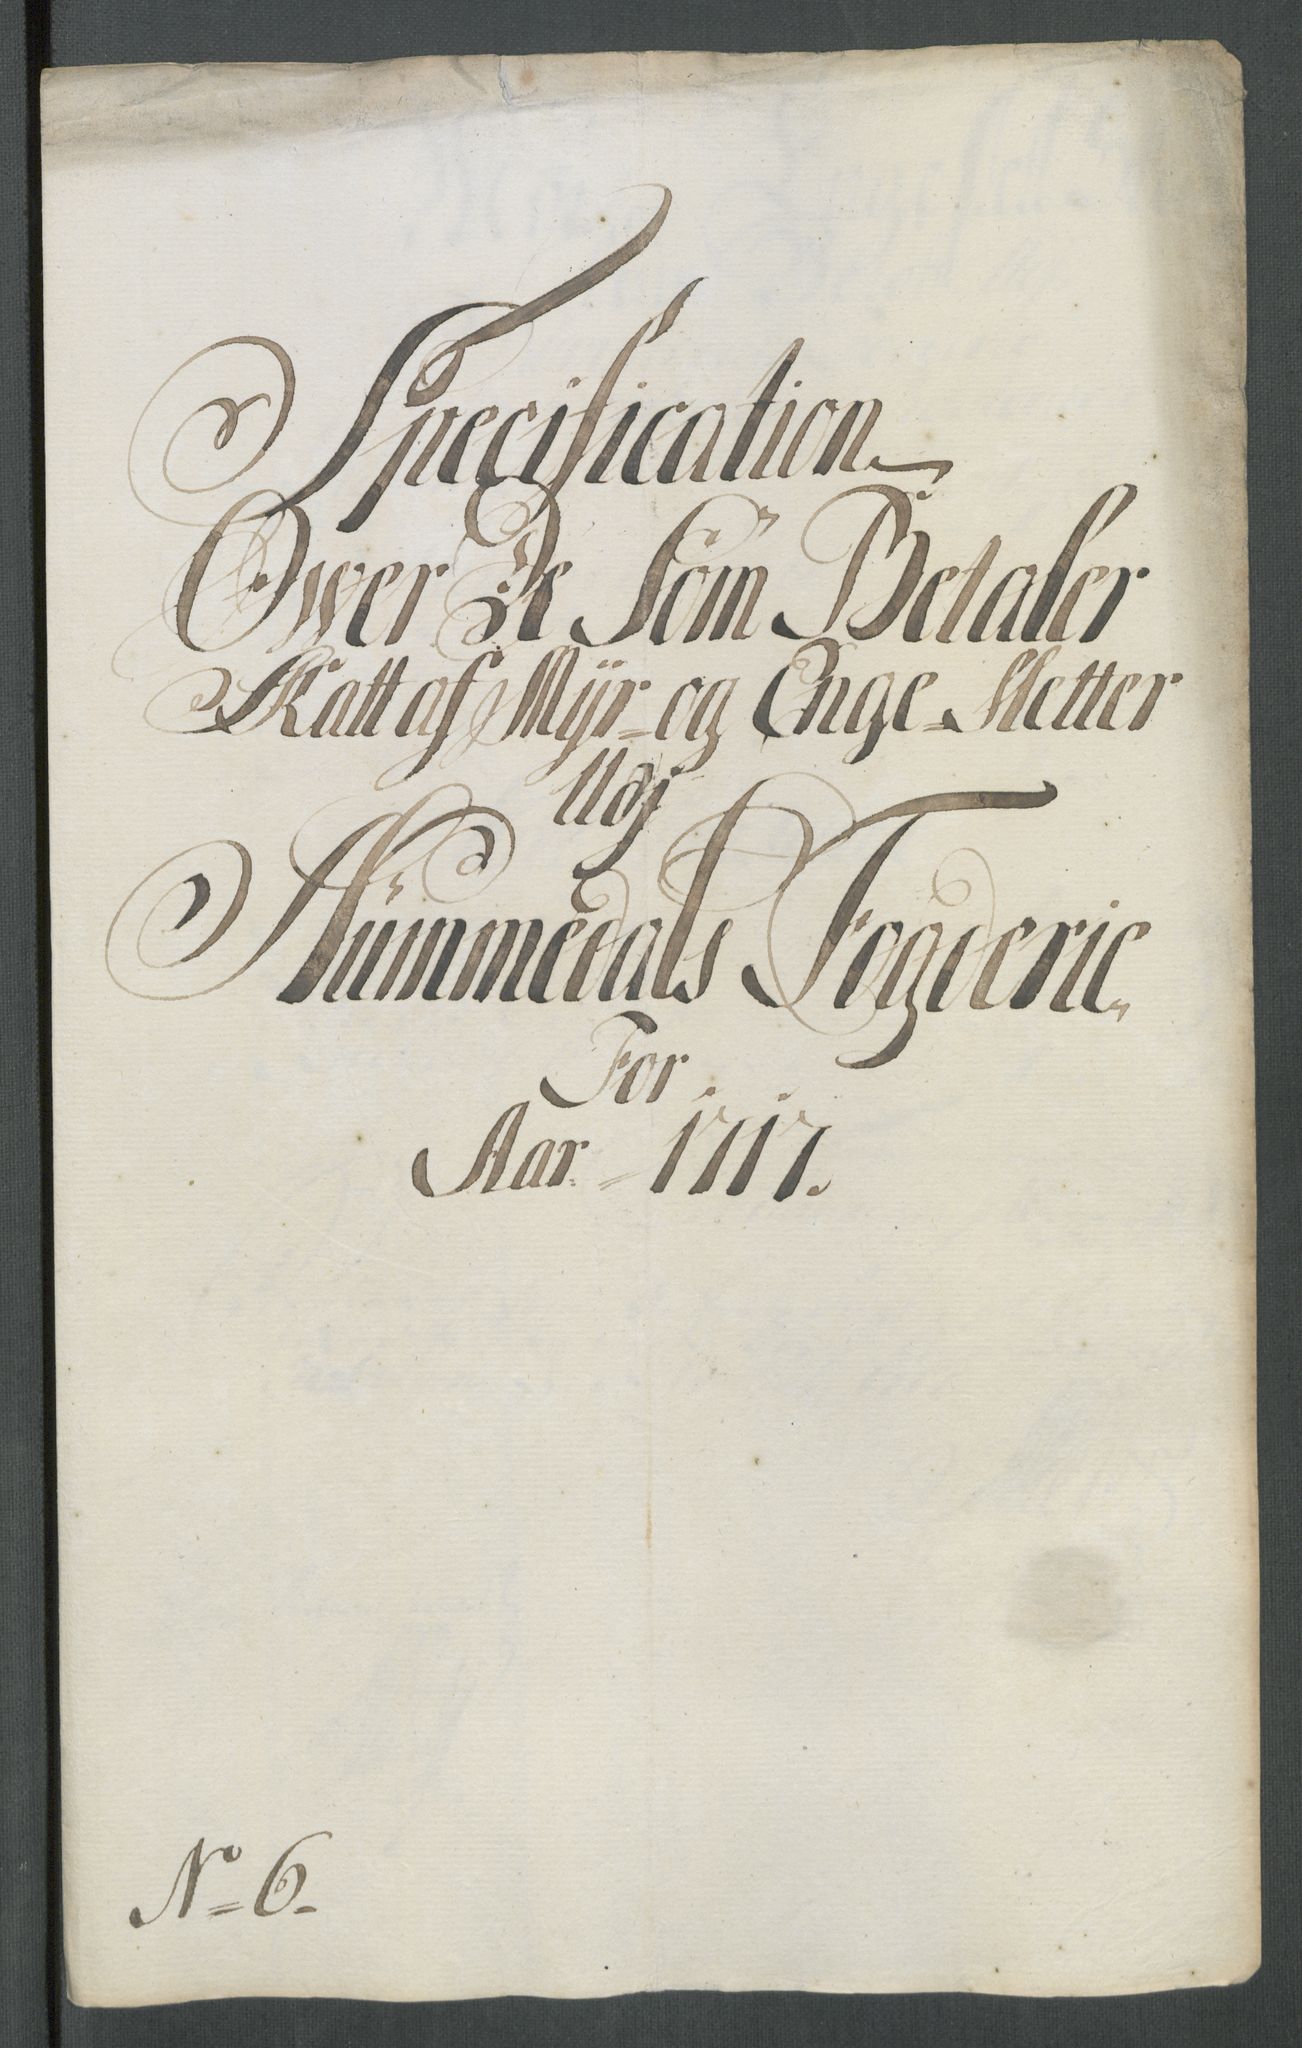 Specification
Ower De Som Betaler
Skatt af Myr- og Enge-Sletter
Udj
Nummedals Fogderie
For
Aar 1717.
No 6